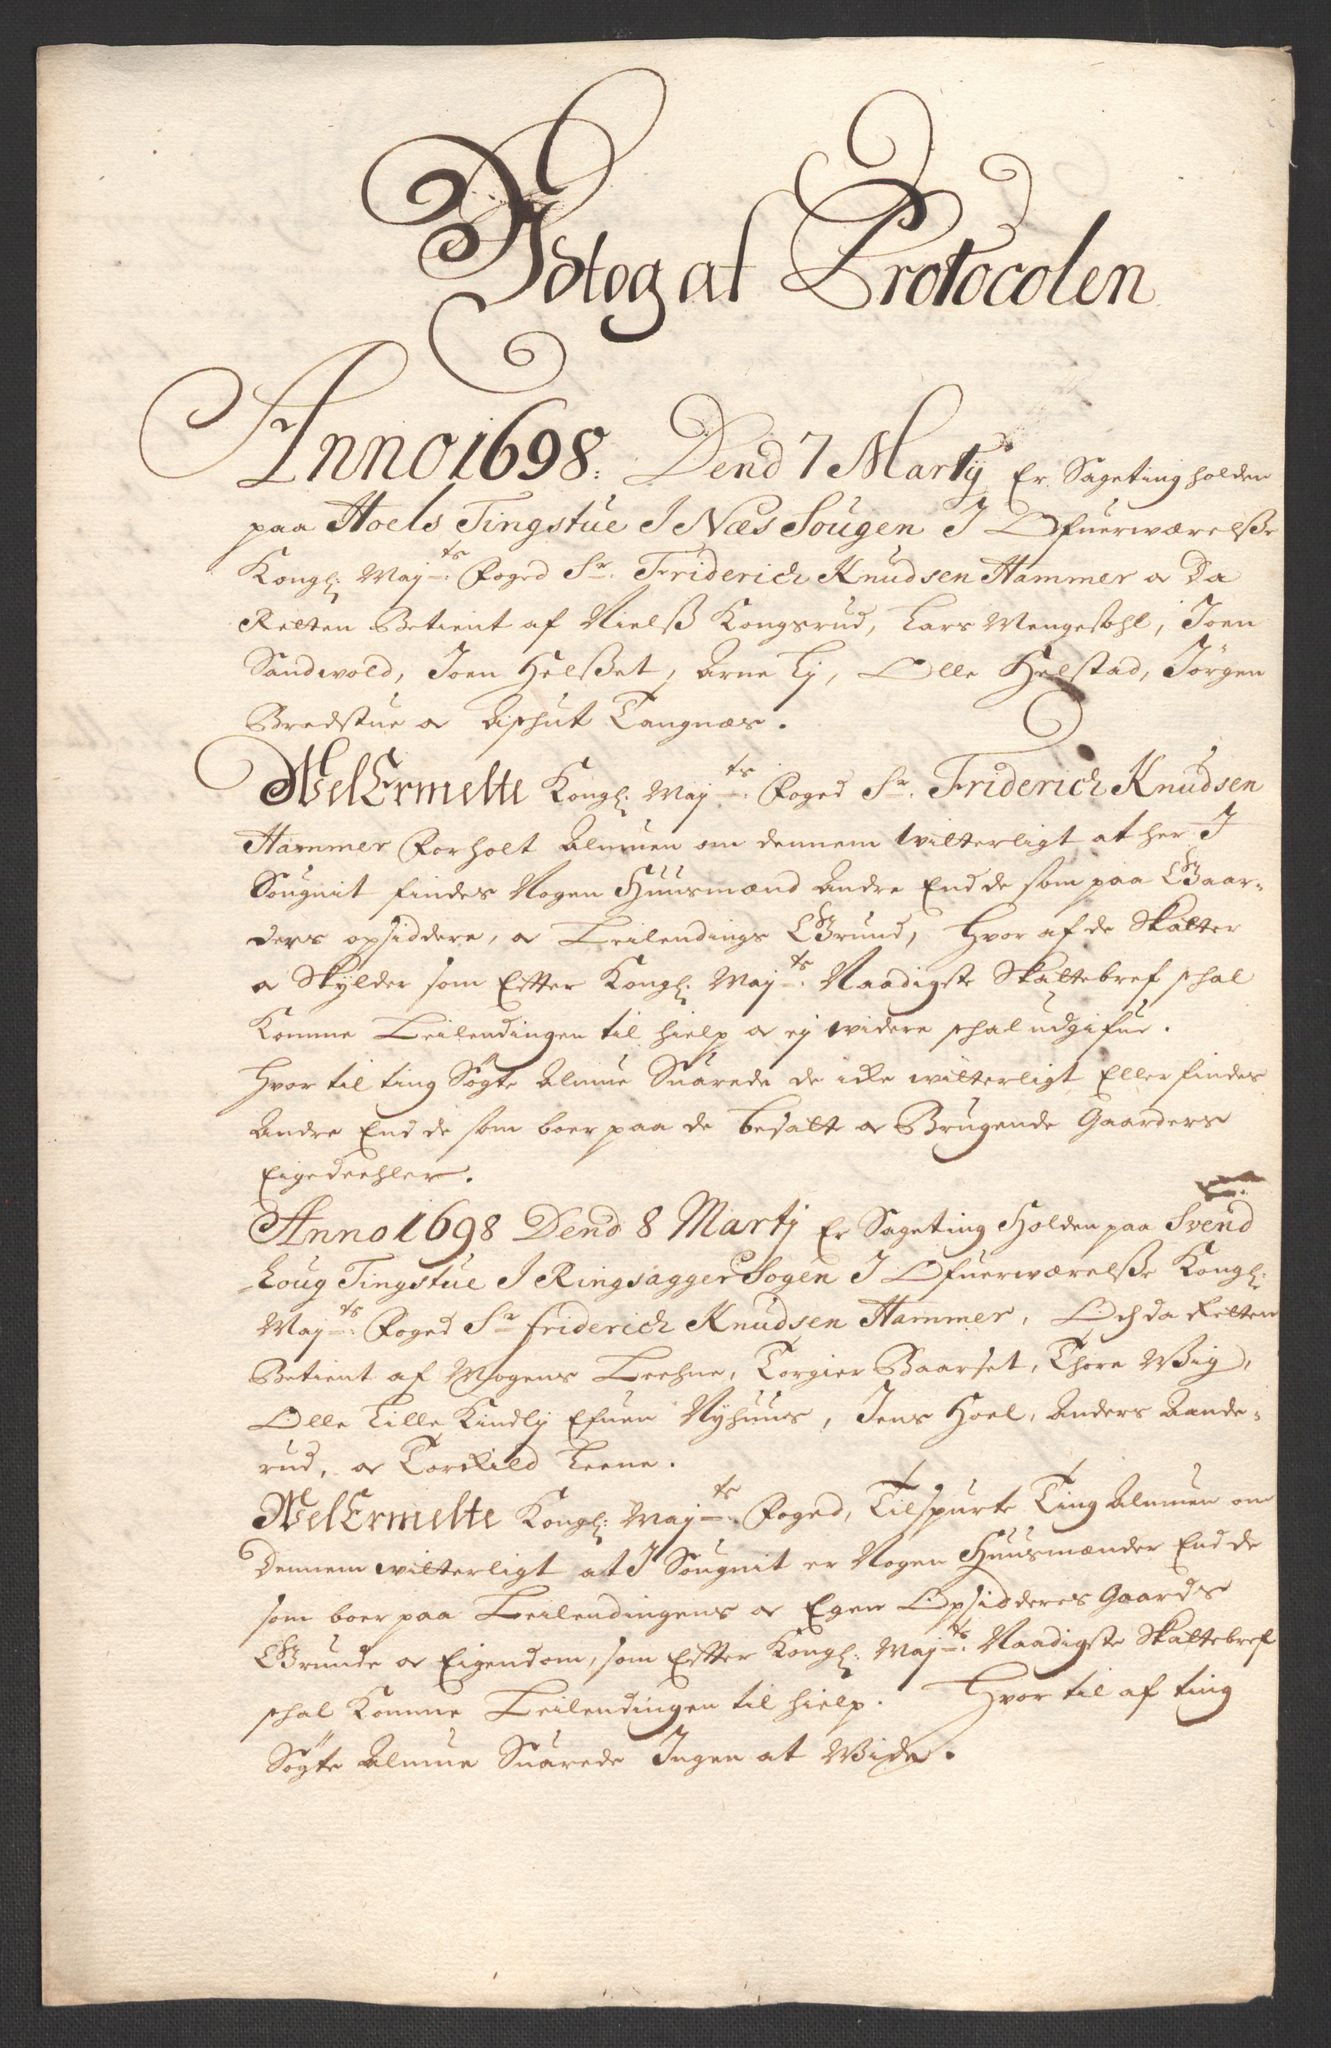 Udtog af Protocolen
Anno 1698: Dend 7 Martij Er Sageting holden
paa Hoels Tingstue I Næs Sougen I Ofuerwærelsße
Kongl: Maj:ts Foged Sr. Friderich Knudsen Hammer oc Da
Retten Betient af Nielß Kongsrud, Lars Mengeshl, Joen
Sandvold, Joen Helßet, Arne Lj, Olle Helstad, Jörgen
Bredstue oc Tangnæs.
WelErmelte Kongl: Maj:ts Foged Sr. Friderich Knudsen
Hammer Forholt Almuen om dennem witterligt at her I
Sougnit findes Nogen Huusmænd Andre End de som paa Gaar-
ders opsiddere, oc Leilendings Grund, Hvor af de Skatter
oc Skylder som Efter Kongl: Maj:ts Naadigste Skattebref schal
Komme Leilendingen til hielp oc ej widere schal udgifue.
Hvor til ting Søgte Almue Suarede de icke witterligt Eller findes
Andre End de som boer paa de besatte oc Brugende Gaarders
Eigedeehler.
Anno 1698 Dend 8 Martj Er Sageting Holden paa Svend
Loug Tingstue I Ringsagger Sogen I Ofuerwærelße Kongl:
Maj:ts Foged Sr friderich Knudsen Hammer, Och da Retten
Betient af Mogens Leehne, Torgier Baarset, Thore Wig,
Olle Lille Kindlj Efuen Nyhuus, Jens Hoel, Anders Aande-
rud, oc Torkild Leene.
WelErmelte Kongl: Maj:ts Foged, Tilspurte Ting Almuen om
Dennem witterligt at I Sougnit er Nogen Huusmænder End de
som boer paa Leilendingens oc Egen Opsidderes Gaards
Grunde oc Eigendom, som Efter Kongl: Maj:ts Naadigste Skattebref
schal Komme Leilendingen til hielp. Hvor til af ting
Søgte Almue Suarede Ingen at Wide.